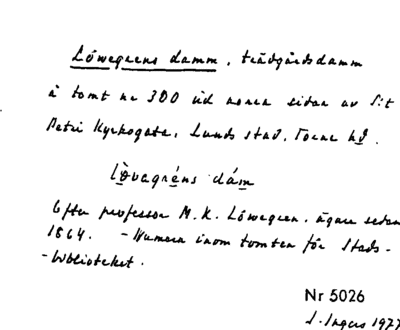 Löwegrens damm, trädgårdsdamm
å tomt nr 300 vid norra sidan av S:t
Petri Kyrkogata, Lunds stad, Torna hd.
Lövagréns dám
Efter professor M. K. Löwegren, ägare sedan
1864. - Numera inom tomten för Stads-
-biblioteket.
Nr 5026
I. Ingers 1977